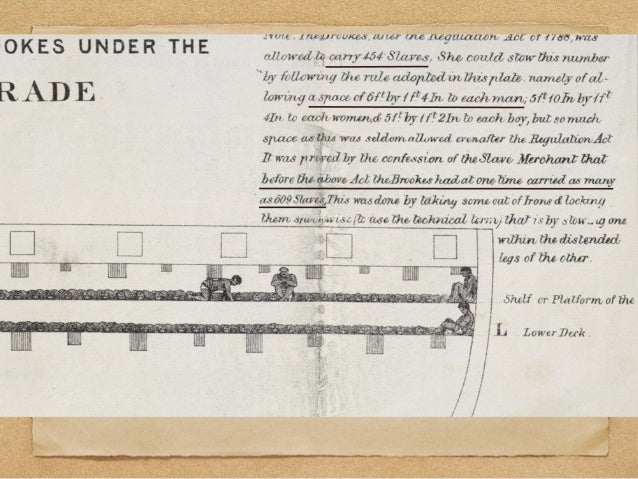 OKES UNDER THE
RADE
Note. The Brookes, after the Regulation Act of 1788, was
allowed to carry 454 Slaves, She could stow this number
by following the rule adopted in this plate. namely of al-
lowing a space of 6ft by 1ft 4In to each man; 5ft 10In by 1ft
4In. to each women, & 5ft by 1ft 2In to each boy, but so much
space as this was seldom allowed even after the Regulation Act
It was proved by the confession of the Slave Merchant that
before the above Act the Brookes had at one time carried as many
as 609 Slaves, This was done by taking some out of Irons & locking
them spoonwise (to use the technical term) that is by stow ug one
within the distended
legs of the other.
Shelf or Platform of the
L Lower Deck.